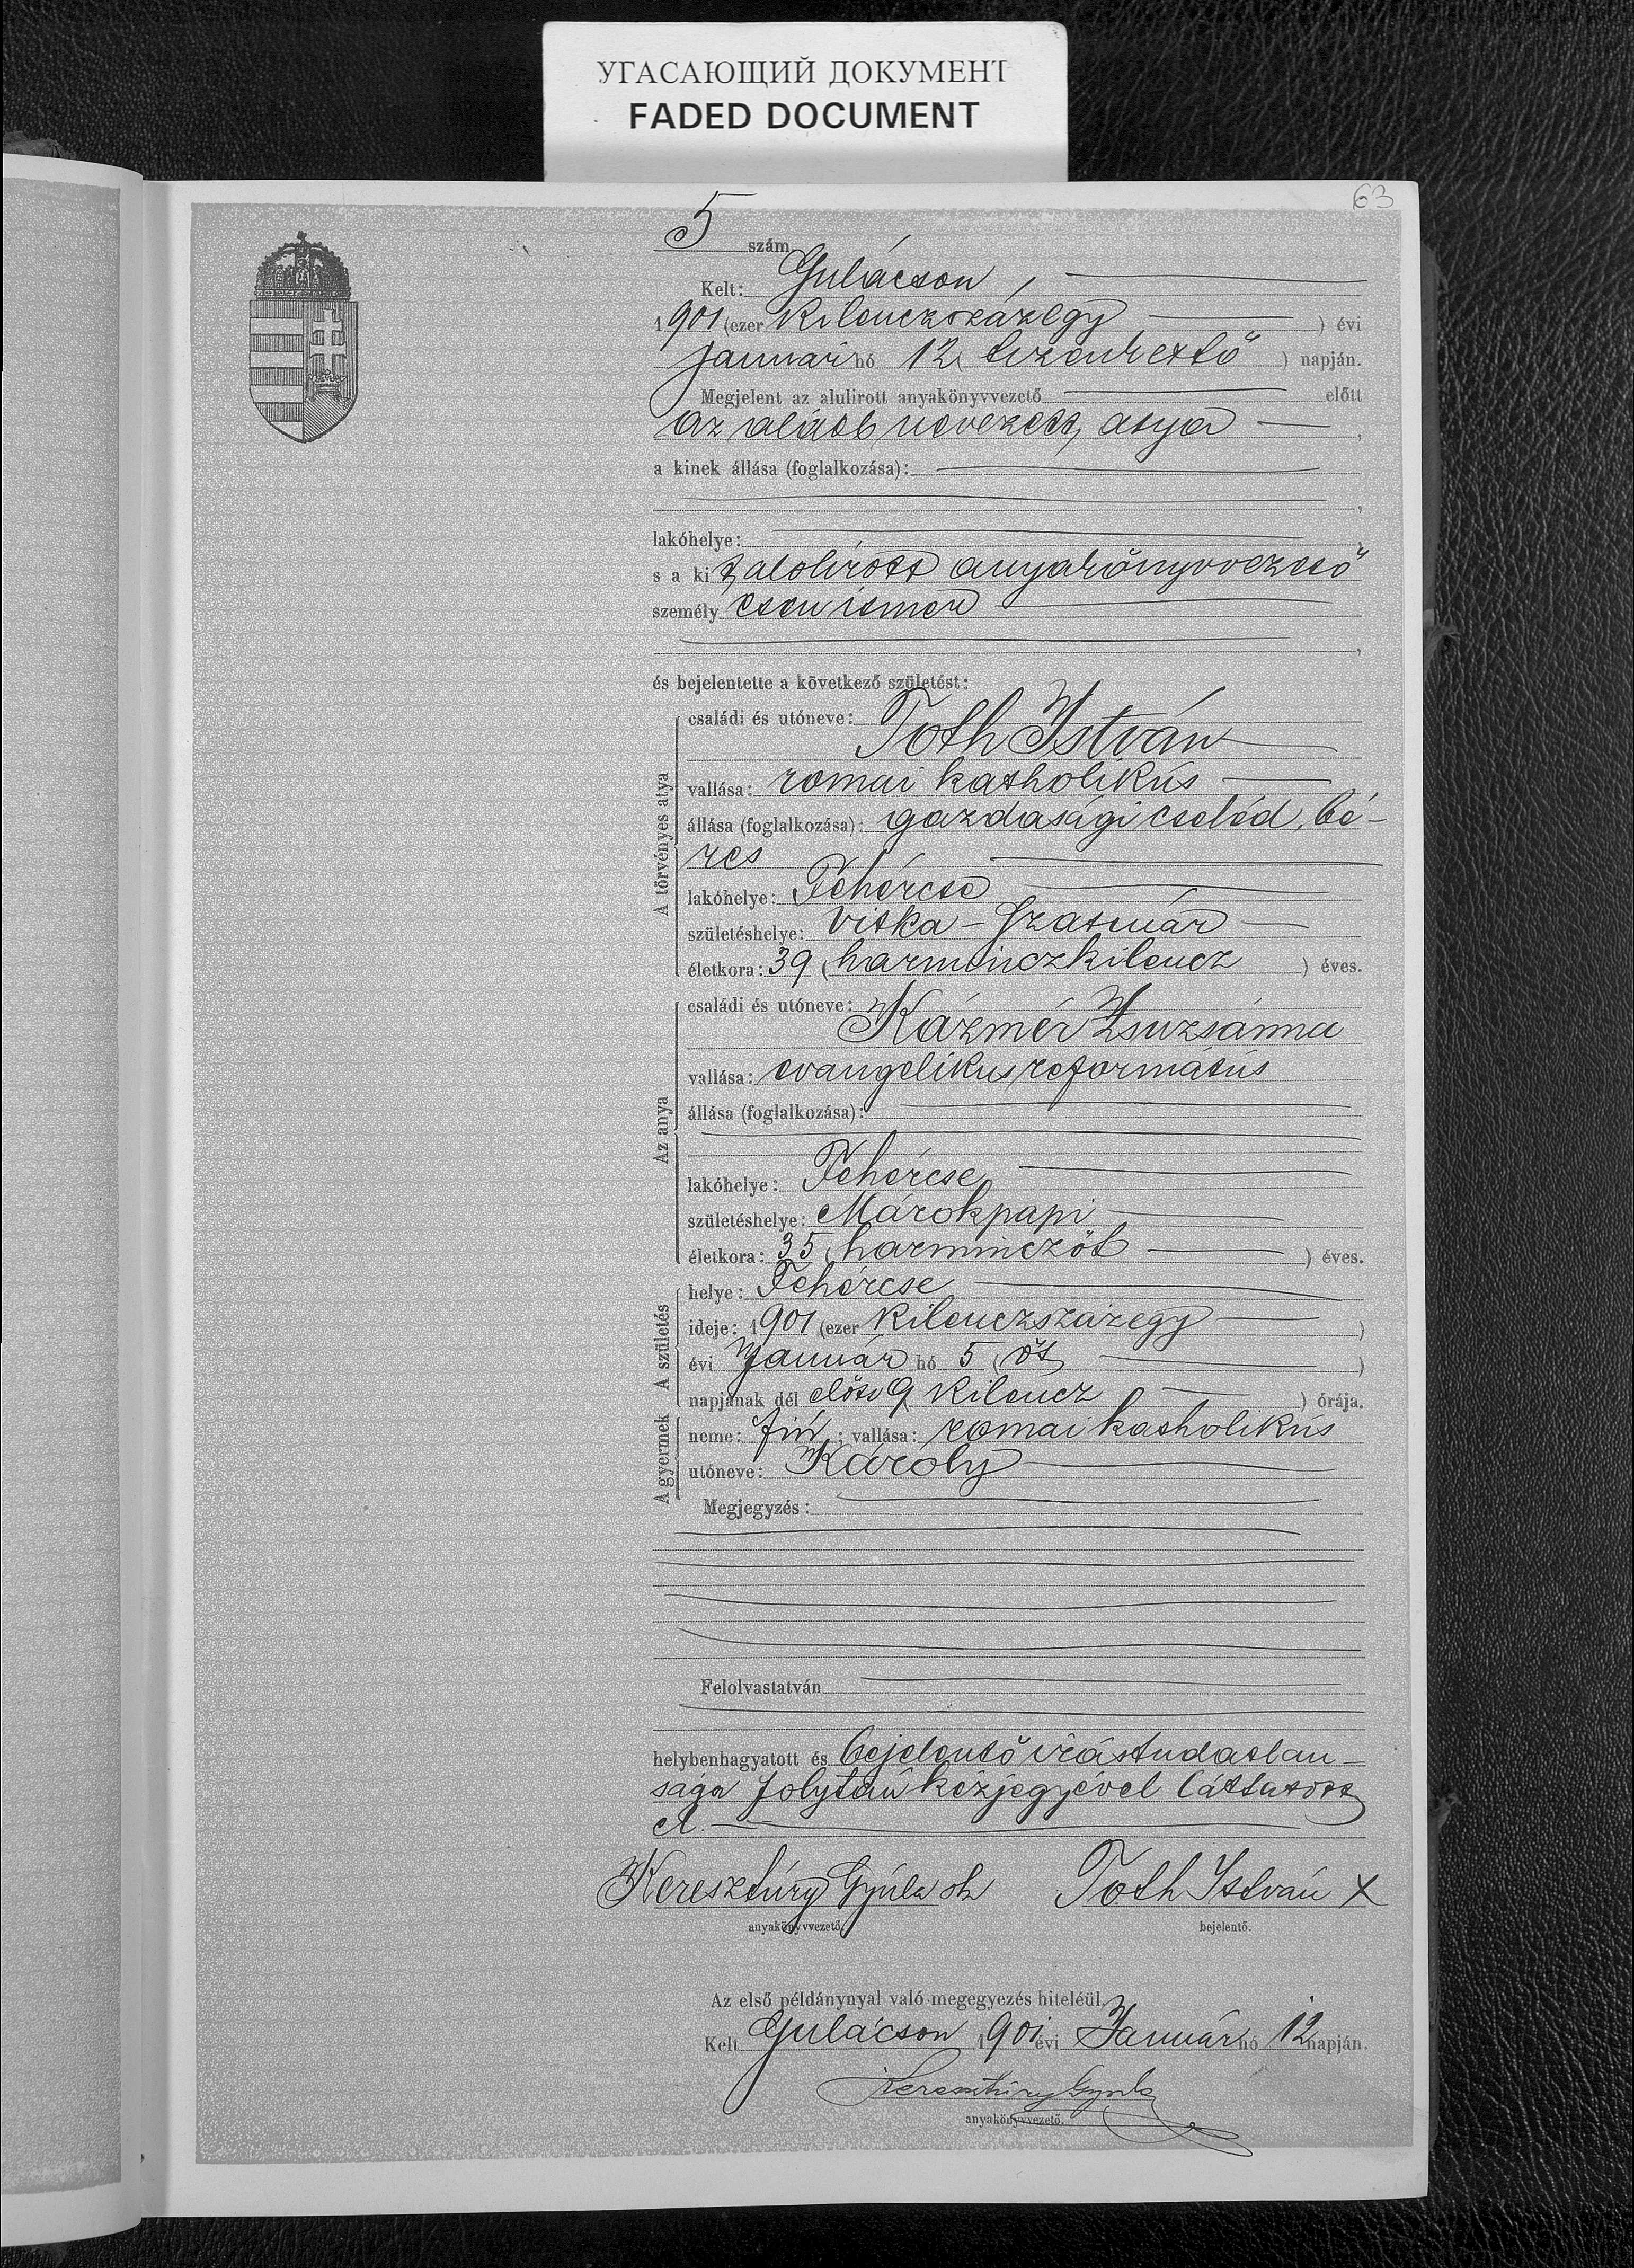 УГАСАЮЩИЙ ДОКУМЕНТ
FADED DOCUMENT
63
5 szám
Kelt: Gulácson,
1901 (ezer kilenczszázegy ) évi
januári hó 12 ( tizenkettő ) napján.
Megjelent az alulirott anyakönyvvezető előtt
az alább nevezett, atya ,
a kinek állása (foglalkozása):
,
lakóhelye:
s a ki t, alolírott anyakönyvvezető
személyesen ismer
,
és bejelentette a következő születést:
A törvényes atya
családi és utóneve:
Toth István
vallása: romai katholikus
állása (foglalkozása): gazdasági cseléd, bé-
res
lakóhelye: Fehércse
születéshelye: Vitka - Szatmár
életkora: 39 ( harminczkilencz ) éves.
Az anya
családi és utóneve:
Kázmér Zsuzsánna
vallása: evangelikus református
állása (foglalkozása):
lakóhelye: Fehércse
születéshelye: Márokpapi
életkora: 35 ( harminczöt ) éves.
A születés
helye: Fehércse
ideje: 1901 (ezer kilenczszázegy )
évi Január hó 5 ( öt )
napjának dél előtti 9 ( kilencz ) órája.
A gyermek
neme: fiú ; vallása: romai katholikus
utóneve: Károly
Megjegyzés:
Felolvastatván
helybenhagyatott és bejelentő irástudatlan-
sága folytán kézjegyével láttatott
el.
Keresztúry Gyúla sk Toth István X
anyakönyvvezető. bejelentő.
Az első példánynyal való megegyezés hiteléül.
Kelt Gulácson 1901 évi Január hó 12 napján.
Keresztúry Gyula
anyakönyvvezető.